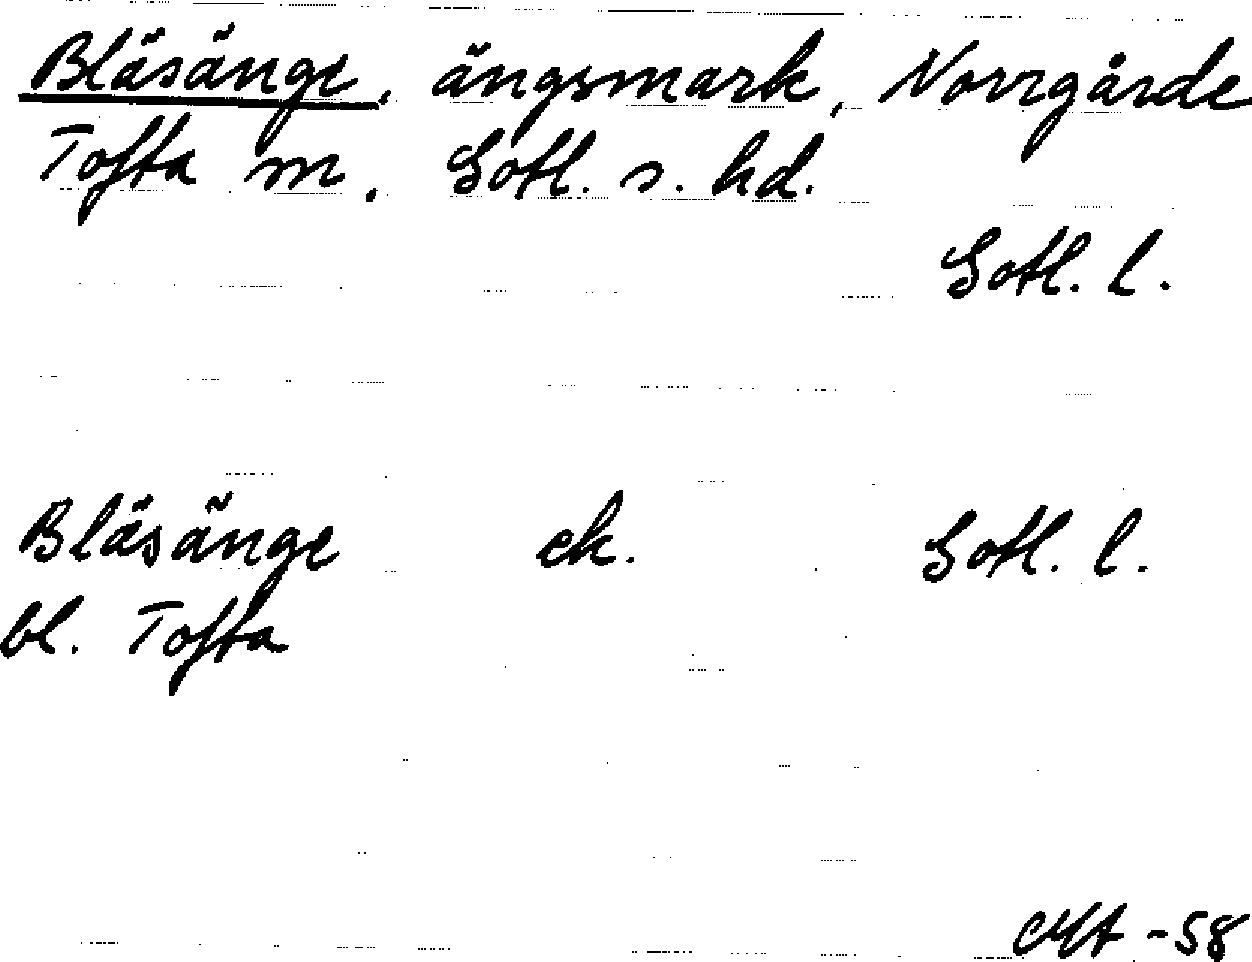 Bläsänge, ängsmark, Norrgårde
Tofta sn. Gotl. s. hd.
Gotl. l.
Bläsänge ek. Gotl. l.
bl. Tofta
-58